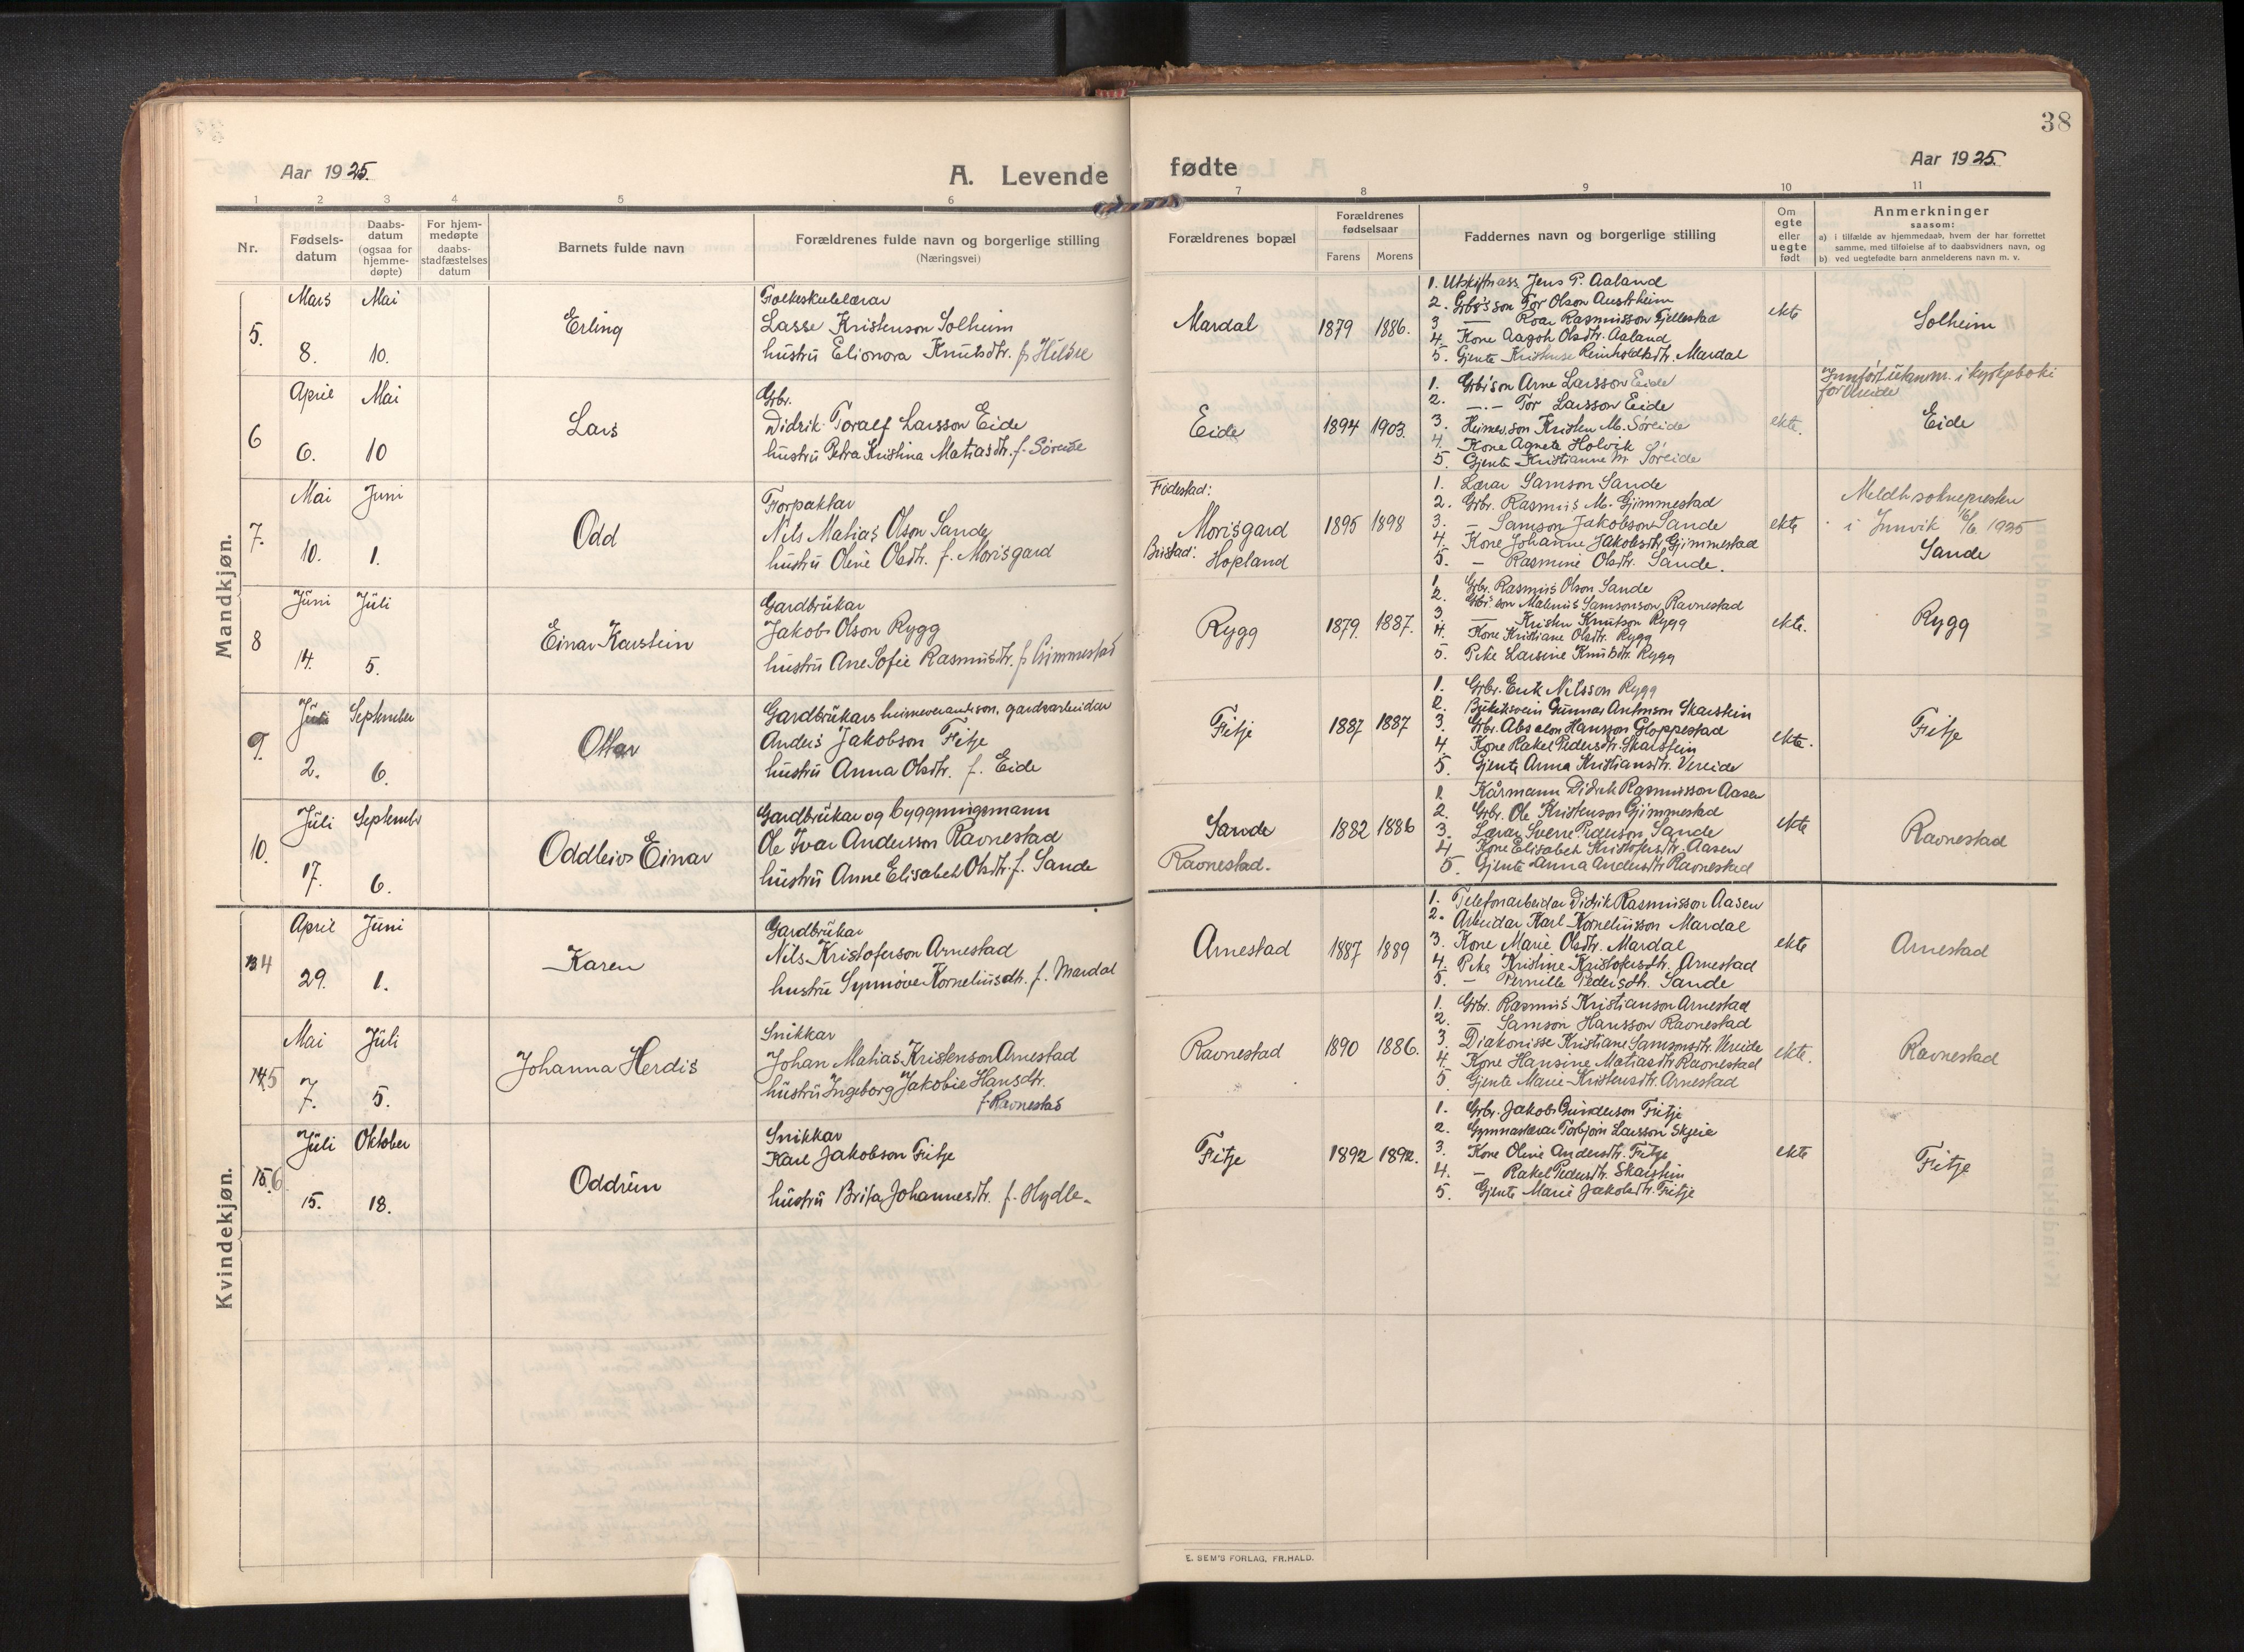 38
Aar 1925.
A. Levende
fødte
Aar 1925.
1 2 3 4 5 6 7 8 9 10 11
Nr.
Fødsels-
datum
Daabs-
datum
(ogsaa for
hjemme-
døpte)
For hjem-
medøpte
daabs-
stadfæstelses
datum
Barnets fulde navn
Forældrenes fulde navn og borgerlige stilling
(Næringsvei)
Forældrenes bopæl
Forældrenes
fødselsaar
Farens Morens
Faddernes navn og borgerlige stilling
Om
egte
eller
uegte
født
Anmerkninger
saasom:
a) i tilfælde av hjemmedaab, hvem der har forrettet
samme, med tilføielse af to daabsvidners navn, og
b) ved uegtefødte barn anmelderens navn m. v.
Mandkjøn.
5.
Mars
8.
Mai
10.
Erling
Folkeskulelærar
Lasse Kristenson Solheim
hustru Elionora Knutsdtr. f. Hildre
Mardal
1879 1886.
1. Utskiftnass. Jens P. Aaland
2. Grbr's son Tor Olson Austrheim
3 — Roar Rasmusson Fjellestad
4. Kone Aagoth Olsdtr. Aaland
5. Gjente Kristense Reinholdtsdtr. Mardal
ekte
Solheim
6
April
6.
Mai
10
Lars
Grbr.
Didrik Toralf Larsson Eide
hustru Petra Kristina Matiasdtr. f. Søreide
Eide
1894 1903.
1. Grbr'son Arne Larsson Eide
2. —.— Tor Larsson Eide
3. Heimev.son Kristen M. Søreide
4. Kone Agnete Holvik
5. Gjente Kristianne M. Søreide
ekte.
Innført utanm. i kyrkjeboki
for Vereide
Eide
7.
Mai
10.
Juni
1.
Odd
Forpaktar
Nils Matias Olson Sande
hustru Oline Olsdtr. f. Morisgard
Fødestad:
Morisgard
Bustad: Hopland
1895 1898
1. Lærar Samson Sande
2. Grbr. Rasmus M. Gjimmestad
3. — Samson Jakobson Sande
4. Kone Johanne Jakobsdtr. Gjimmestad
5. — Rasmine Olsdtr. Sande.
ekte
Meldt soknepresten
i Innvik 16/6 1925
Sande
8
Juni
14.
Juli
5.
Einar Karstein
Gardbrukar
Jakob Olson Rygg
hustru Ane Sofie Rasmusdtr. f. Gimmestad
Rygg
1879. 1887.
1. Grbr. Rasmus Olson Sande
2. Grbr's son Matenus Samsonson Ravnestad
3. — Kristen Knutson Rygg
4. Kone Kristiane Olsdtr. Rygg
5. Pike Larsine Knutsdtr. Rygg
ekte.
Rygg
9.
Juli
2.
September
6.
Ottar
Gardbrukars heimeverandeson, gardsarbeidar
Anders Jakobson Fitje
hustru Anna Olsdtr. f. Eide
Fitje
1887 1887
1. Grbr. Erik Nilsson Rygg
2. Butiksvein Gunnar Antonson Skarstein
3. Grbr. Absalon Hansson Gloppestad
4. Kone Rakel Pedersdtr. Skarstein
5. Gjente Anna Kristiansdtr. Vereide
ekte.
Fitje
10.
Juli
17.
September
6.
Oddleiv Einar
Gardbrukar og byggningsmann
Ole Ivar Andersson Ravnestad
hustru Anne Elisabet Olsdtr. f. Sande
Sande
Ravnestad.
1882 1886
1. Kårmann Didrik Rasmusson Aasen
2. Grbr. Ole Kristenson Gjimmestad
3. Lærar Sverre Pederson Sande
4. Kone Elisabet Kristofersdtr. Aasen
5. Gjente Anna Andersdtr. Ravnestad
ekte
Ravnestad
Kvindekjøn.
4
April
29.
Juni
1.
Karen
Gardbrukar
Nils Kristoferson Arnestad
hustru Synnøve Korneliusdtr. f. Mardal
Arnestad
1887 1889
1. Telefonarbeidar Didrik Rasmusson Aasen
2. Arbeidar Karl Korneliusson Mardal
3. Kone Marie Olsdtr. Mardal
4. Pike Kristine Kristofersdtr. Arnestad
5. — Pernille Pedersdtr. Sande
ekte
Arnestad
5
Mai
7.
Juli
5.
Johanna Herdis
Snikkar
Johan Matias Kristenson Arnestad
hustru Ingeborg Jakobie Hansdtr.
f. Ravnestad
Ravnestad
1890 1886.
1. Grbr. Rasmus Kristianson Arnestad
2. — Samson Hansson Ravnestad
3. Diakonisse Kristiane Samsonsdtr. Vereide
4. Kone Hansine Matiasdtr. Ravnestad
5. Gjente Marie Kristensdtr. Arnestad
ekte.
Ravnestad
6
Juli
15.
Oktober
18.
Oddrun
Snikkar
Karl Jakobson Fitje
hustru Brita Johannesdtr. f. Hydle.
Fitje
1892 1892.
1. Grbr. Jakob Gunderson Fitje
2. Gymnaslærar Torbjørn Larsson Skjeie
3. Kone Oline Andersdtr. Fitje
4. — Rakel Pedersdtr. Skarstein
5. Gjente Marie Jakobsdtr. Fitje
ekte
Fitje
E. SEM'S FORLAG, FR.HALD.